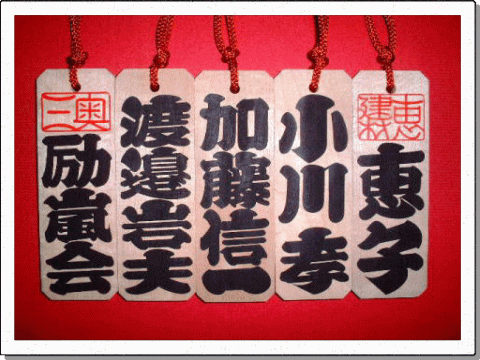 恵建材
恵子
小川孝
加藤信一
渡邉岩夫
奥三
励嵐会